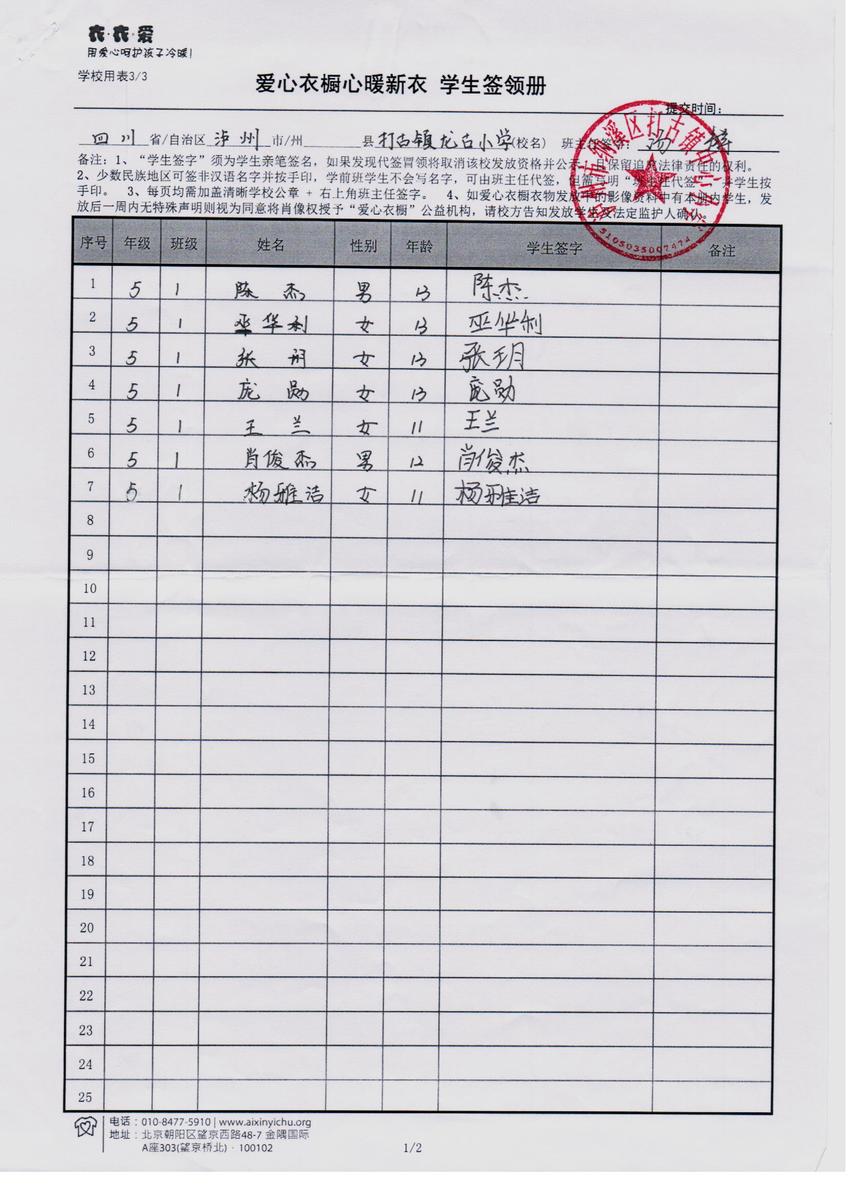 衣·衣·爱
用爱心呵护孩子冷暖!
学校用表3/3
爱心衣橱心暖新衣 学生签领册
提交时间:
四川 省/自治区 泸州 市/州 县 打古镇龙石小学(校名) 班主任签
备注:1、“学生签字”须为学生亲笔签名,如果发现代签冒领将取消该校发放资格并公示!且保留追究法律责任的权利。
2、少数民族地区可签非汉语名字并按手印,学前班学生不会写名字,可由班主任代签,但需写明“班主任代签”,并学生按
手印。 3、每页均需加盖清晰学校公章 + 右上角班主任签字。 4、如爱心衣橱衣物发放中的影像资料中有本册内学生,发
放后一周内无特殊声明则视为同意将肖像权授予“爱心衣橱”公益机构,请校方告知发放学生及法定监护人确认。
5105035007474
序号 年级 班级 姓名 性别 年龄 学生签字 备注
1 5 1 陈杰 男 13 陈杰
2 5 1 巫华利 女 13 巫华利
3 5 1 张玥 女 13 张玥
4 5 1 庞勋 女 13 庞勋
5 5 1 王兰 女 11 王兰
6 5 1 肖俊杰 男 12 肖俊杰
7 5 1 杨雅洁 女 11 杨雅洁
8
9
10
11
12
13
14
15
16
17
18
19
20
21
22
23
24
25
电话:010-8477-5910 | www.aixinyichu.org
地址:北京朝阳区望京西路48-7 金隅国际
A座303(望京桥北)·100102
1/2